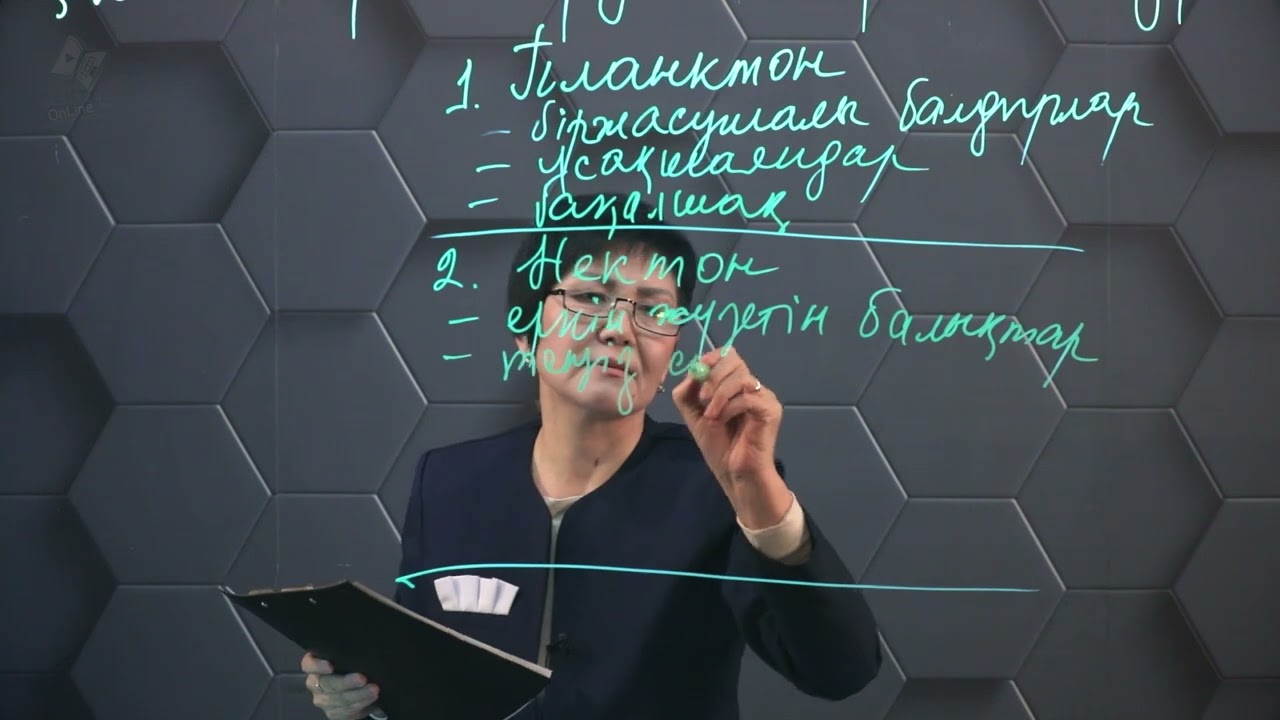 OnLine
1. Планктон
- біржасушалы балдырлар
- ұсақшаяндар
- бақалшақ
2. Нектон
- еркін жүзетін балықтар
- теңіз